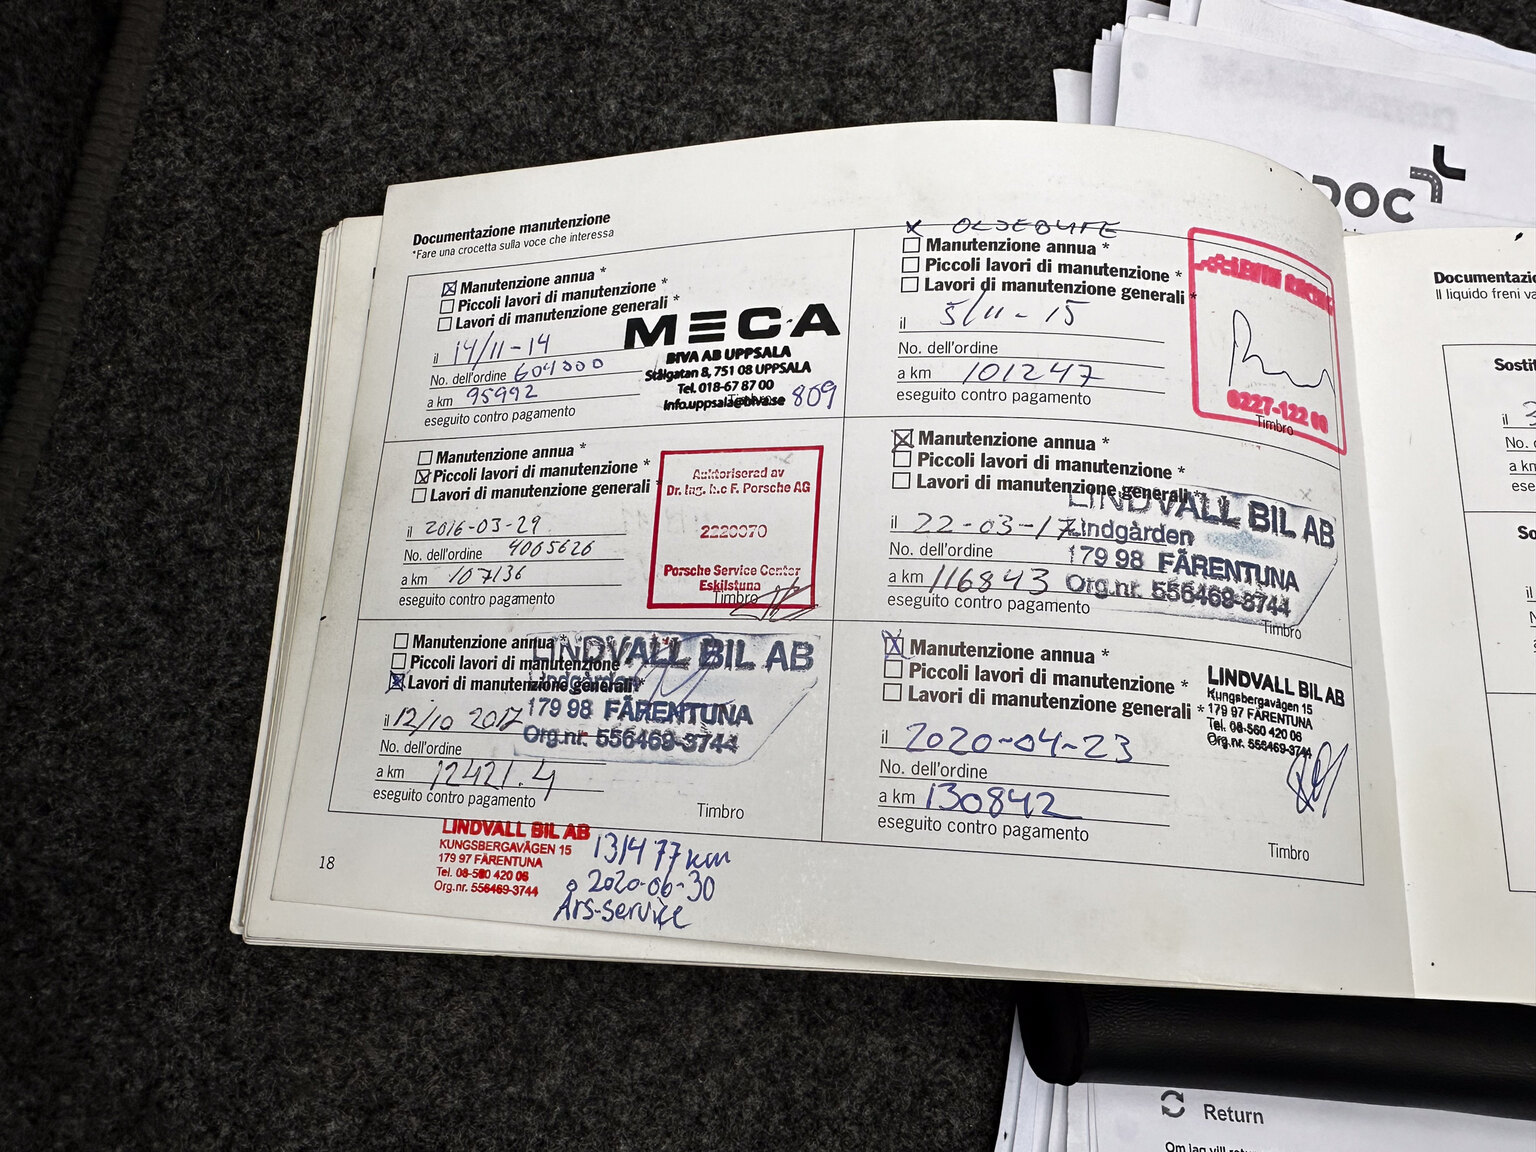 DOC
Documentazione manutenzione
*Fare una crocetta sulla voce che interessa
Manutenzione annua *
Piccoli lavori di manutenzione *
Lavori di manutenzione generali *
il 14/11-14
No. dell'ordine 604000
a km 95992
eseguito contro pagamento
MECA
BIVA AB UPPSALA
Stålgatan 8, 751 08 UPPSALA
Tel. 018-67 87 00
Info.uppsala@biva.se
Timbro
809
x OLJEBYTE
Manutenzione annua *
Piccoli lavori di manutenzione *
Lavori di manutenzione generali *
il 5/11-15
No. dell'ordine
a km 101247
eseguito contro pagamento
0227-122 00
Timbro
Manutenzione annua *
Piccoli lavori di manutenzione *
Lavori di manutenzione generali *
il 2016-03-29
No. dell'ordine 4005626
a km 107136
eseguito contro pagamento
Auktoriserad av
Dr. Ing. h.c F. Porsche AG
2220070
Porsche Service Center
Eskilstuna
Timbro
Manutenzione annua *
Piccoli lavori di manutenzione *
Lavori di manutenzione generali *
il 22-03-17
No. dell'ordine
a km 116843
eseguito contro pagamento
LINDVALL BIL AB
Lindgården
179 98 FÄRENTUNA
Org.nr. 556469-3744
Timbro
Manutenzione annua *
Piccoli lavori di manutenzione
Lavori di manutenzione generali*
il 12/10 2017
No. dell'ordine
a km 12421.4
eseguito contro pagamento
LINDVALL BIL AB
Lindgården
179 98 FÄRENTUNA
Org.nr. 556469-3744
Timbro
Manutenzione annua *
Piccoli lavori di manutenzione *
Lavori di manutenzione generali *
il 2020-04-23
No. dell'ordine
a km 130842
eseguito contro pagamento
LINDVALL BIL AB
Kungsbergavägen 15
179 97 FÄRENTUNA
Tel. 08-560 420 06
Org.nr. 556469-3744
Timbro
LINDVALL BIL AB
KUNGSBERGAVÄGEN 15
179 97 FÄRENTUNA
Tel. 08-560 420 06
Org.nr. 556469-3744
131477 km
2020-06-30
Års-service
18
Documentazio
Il liquido freni va
Sostit
il 3
No. d
a km
ese
So
il
No.
a k
Return
Om jag vill retu